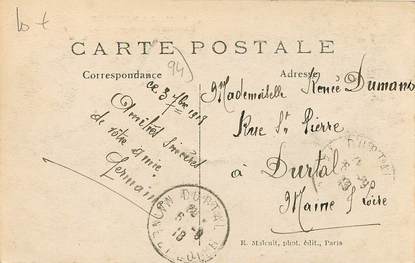 CARTE POSTALE
Correspondance
Adresse
94
ce 3 7bre 1908
Amitiés Sincères
de votre amie
Germain
Mademoiselle Renée Dumans
Rue St Pierre
à Durtal
Maine & Loire
DURTAL
R. Malcuit, phot. édit., Paris